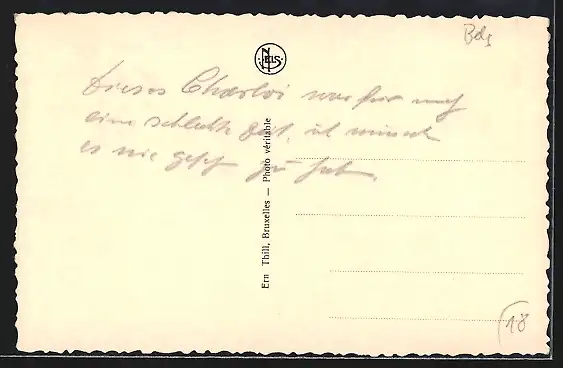 Bdg
NELS
dieses Charloi war für mich
eine schlechte Zeit, ich wünsch
es nie gesehn zu hab.
Ern Thill, Bruxelles — Photo véritable
18